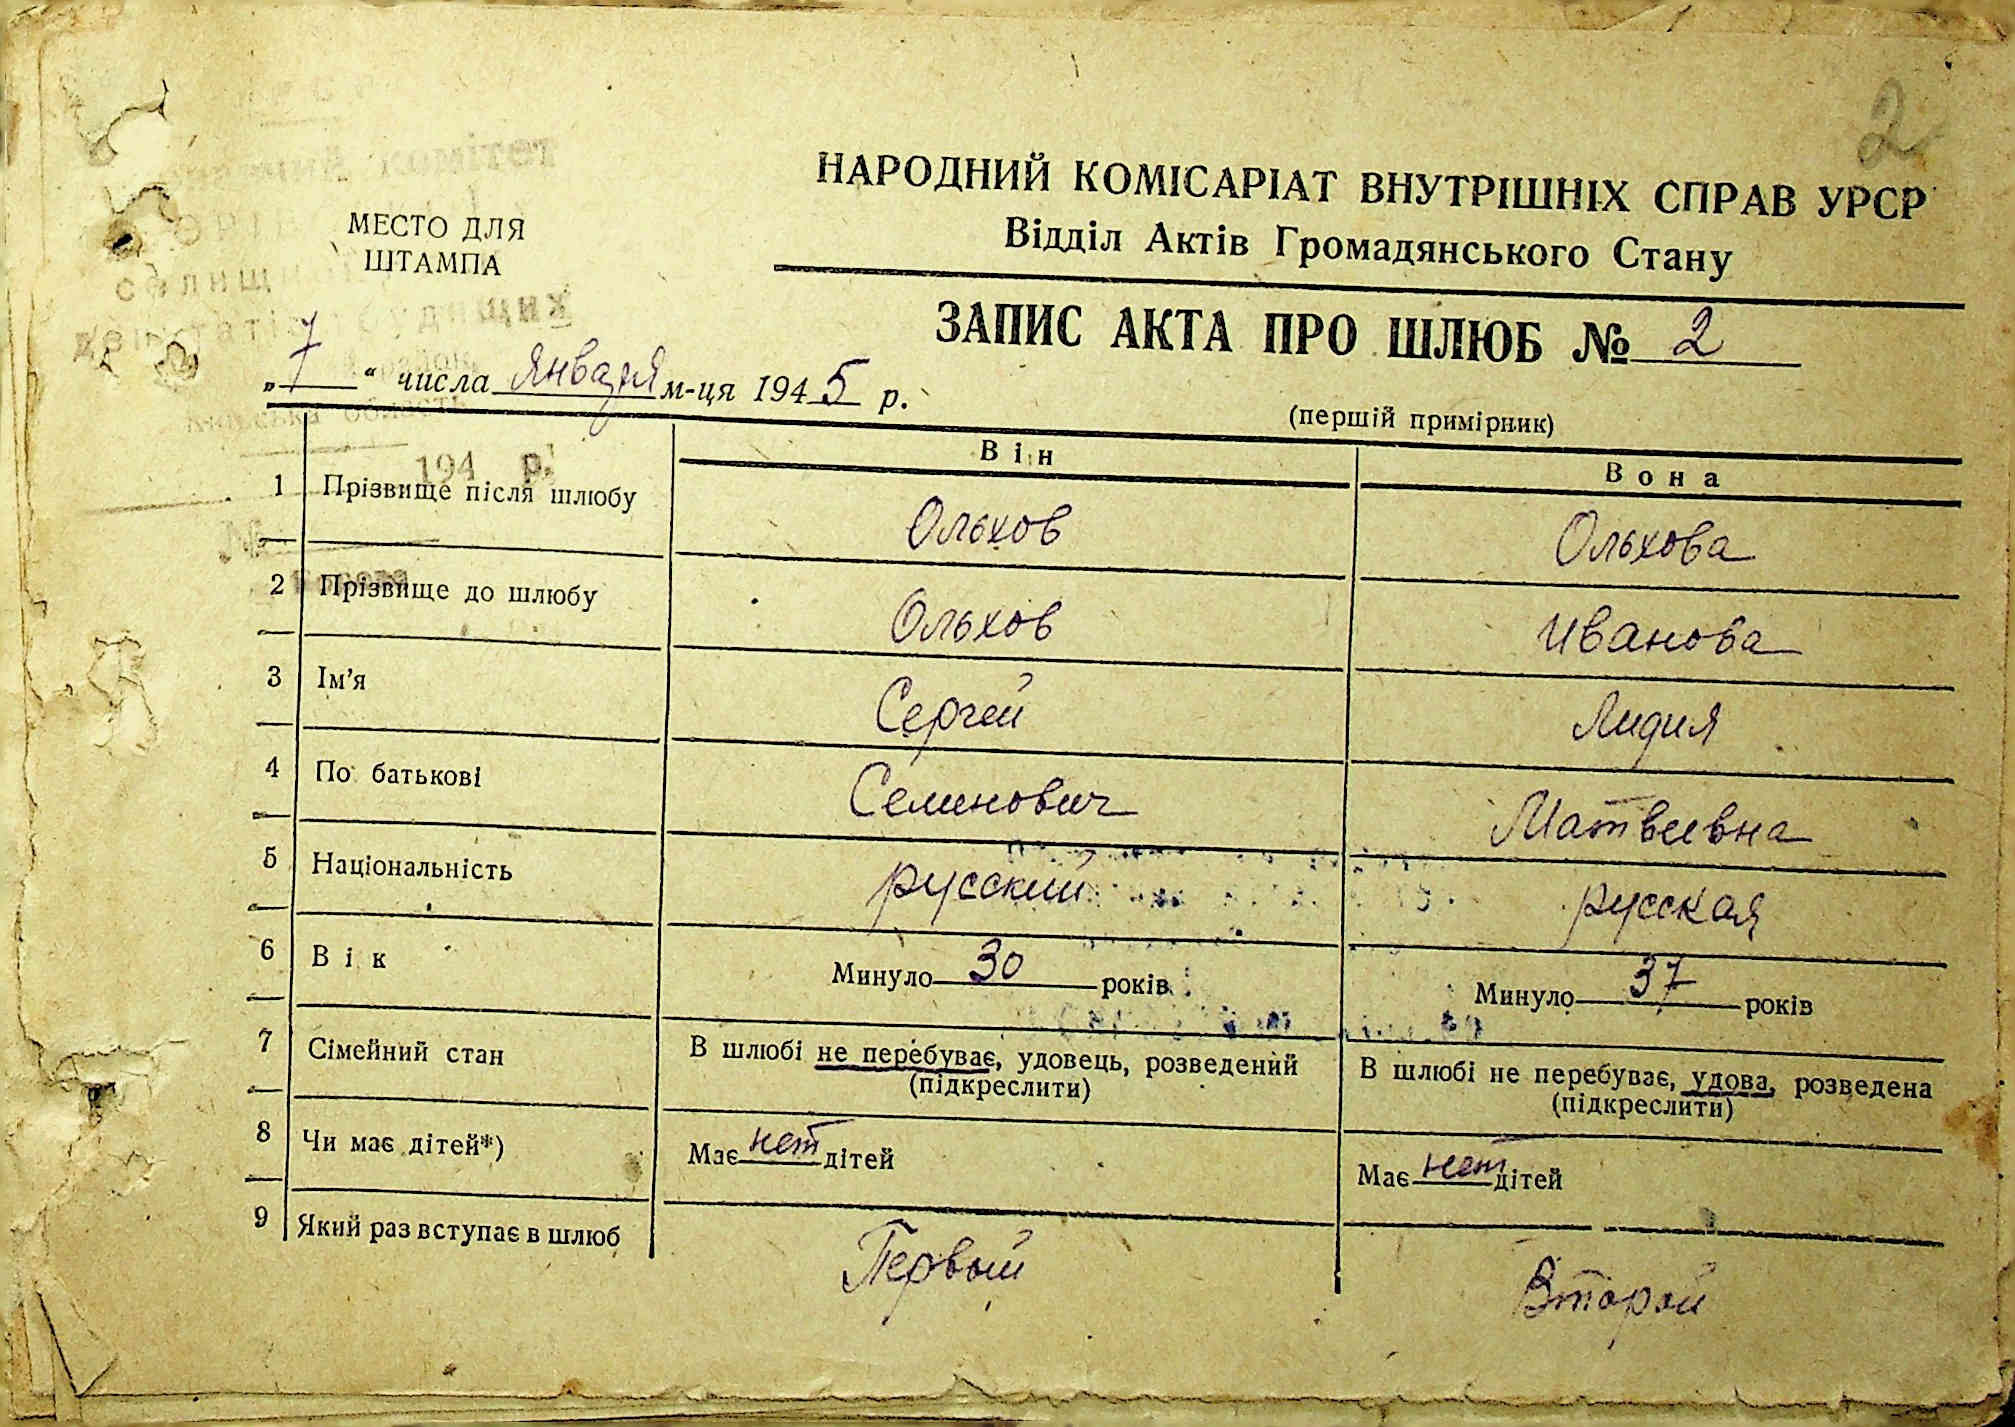 2
комітет
НАРОДНИЙ КОМІСАРІАТ ВНУТРІШНІХ СПРАВ УРСР
Відділ Актів Громадянського Стану
МЕСТО ДЛЯ
ШТАМПА
ЗАПИС АКТА ПРО ШЛЮБ № 2
„7“ числа января м-ця 1945 р.
(першій примірник)
194 р.
Він Вона
1 Прізвище після шлюбу Ольхов Ольхова
2 Прізвище до шлюбу Ольхов Иванова
3 Ім'я Сергей Лидия
4 По батькові Семинович Матвеевна
5 Національність русский русская
6 Вік Минуло 30 років Минуло 37 років
7 Сімейний стан В шлюбі не перебуває, удовець, розведений В шлюбі не перебуває, удова, розведена
(підкреслити) (підкреслити)
8 Чи має дітей*) Має нет дітей Має нет дітей
9 Який раз вступає в шлюб Первый Второй